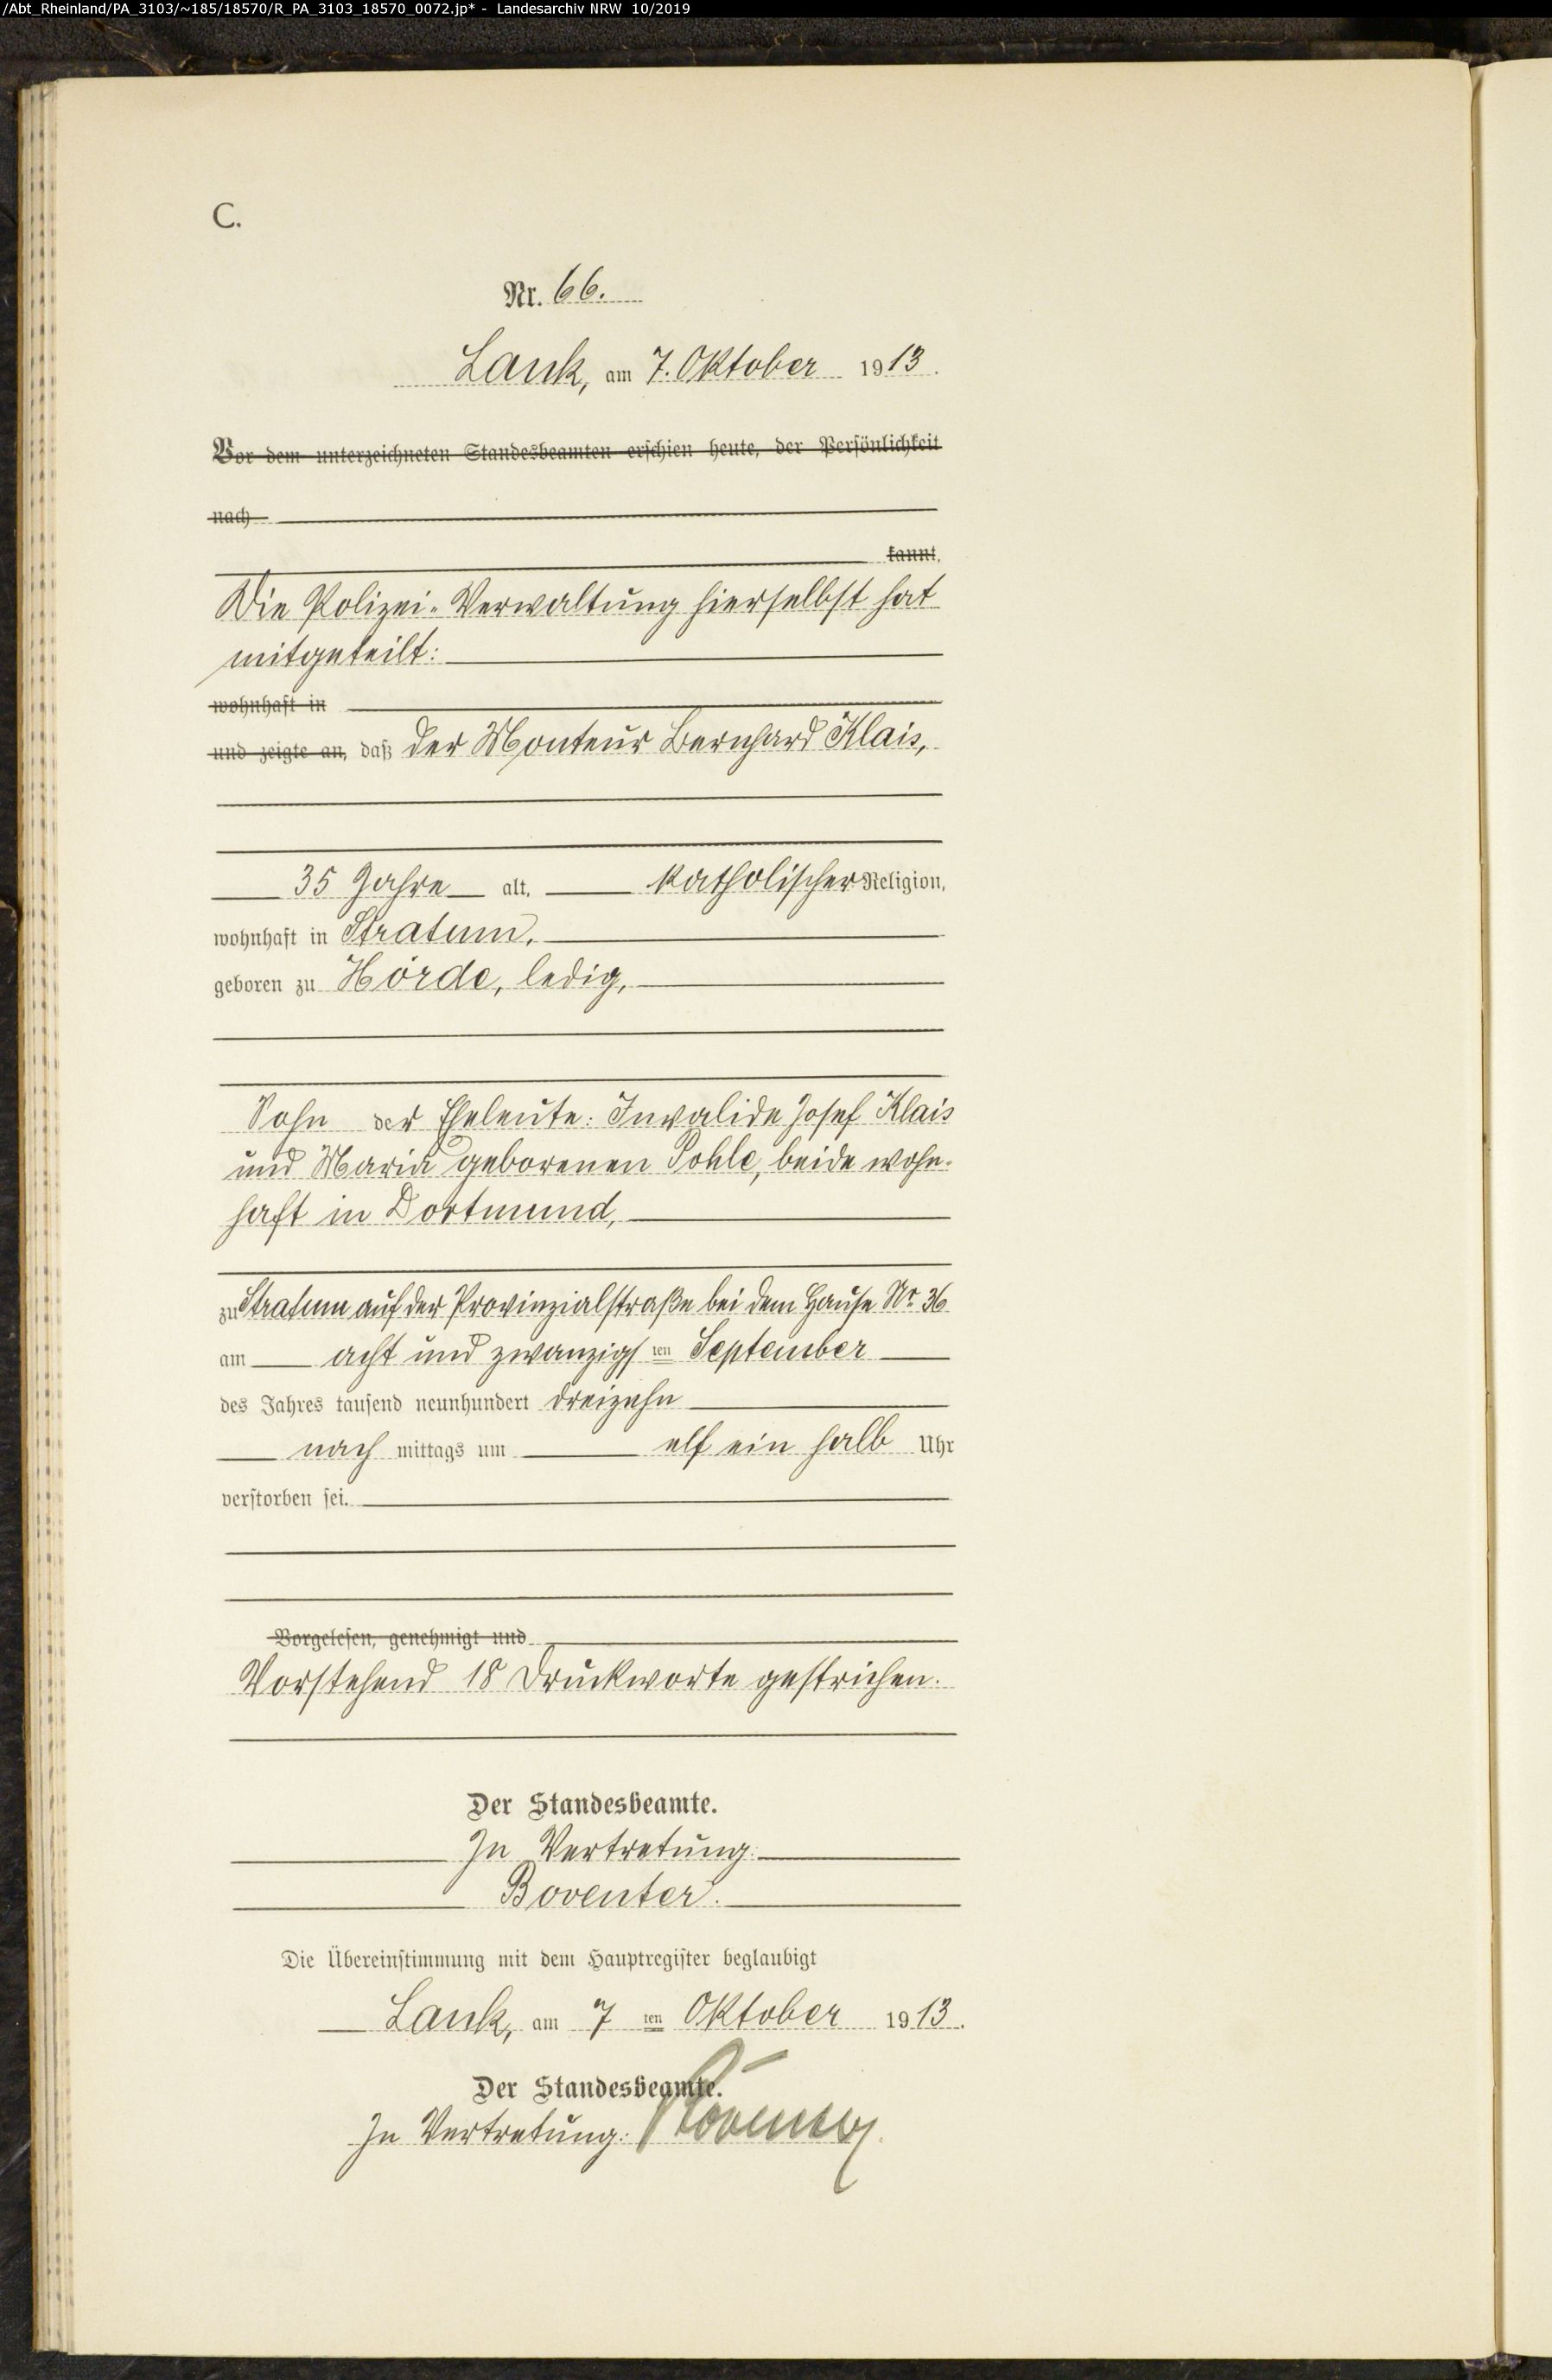 /Abt_Rheinland/PA_3103/~185/18570/R_PA_3103_18570_0072.jp* - Landesarchiv NRW 10/2019
C.
Nr. 66.
Lank, am 7. Oktober 1913.
Vor dem unterzeichneten Standesbeamten erschien heute, der Persönlichkeit
nach
kannt,
Die Polizei-Verwaltung hierselbst hat
mitgeteilt:
wohnhaft in
und zeigte an, daß der Monteur Bernhard Klais,
35 Jahre alt, katholischer Religion,
wohnhaft in Stratum,
geboren zu Hörde, ledig,
Sohn der Eheleute: Invalide Josef Klais
und Maria geborenen Pohle, beide wohn-
haft in Dortmund,
zu Stratum auf der Provinzialstraße bei dem Hause Nr. 36
am acht und zwanzigsten September
des Jahres tausend neunhundert dreizehn
nach mittags um elf ein halb Uhr
verstorben sei.
Vorgelesen, genehmigt und
Vorstehend 18 Druckworte gestrichen.
Der Standesbeamte.
In Vertretung:
Boventer.
Die Übereinstimmung mit dem Hauptregister beglaubigt
Lank, am 7 ten Oktober 1913.
Der Standesbeamte.
In Vertretung: Boventer